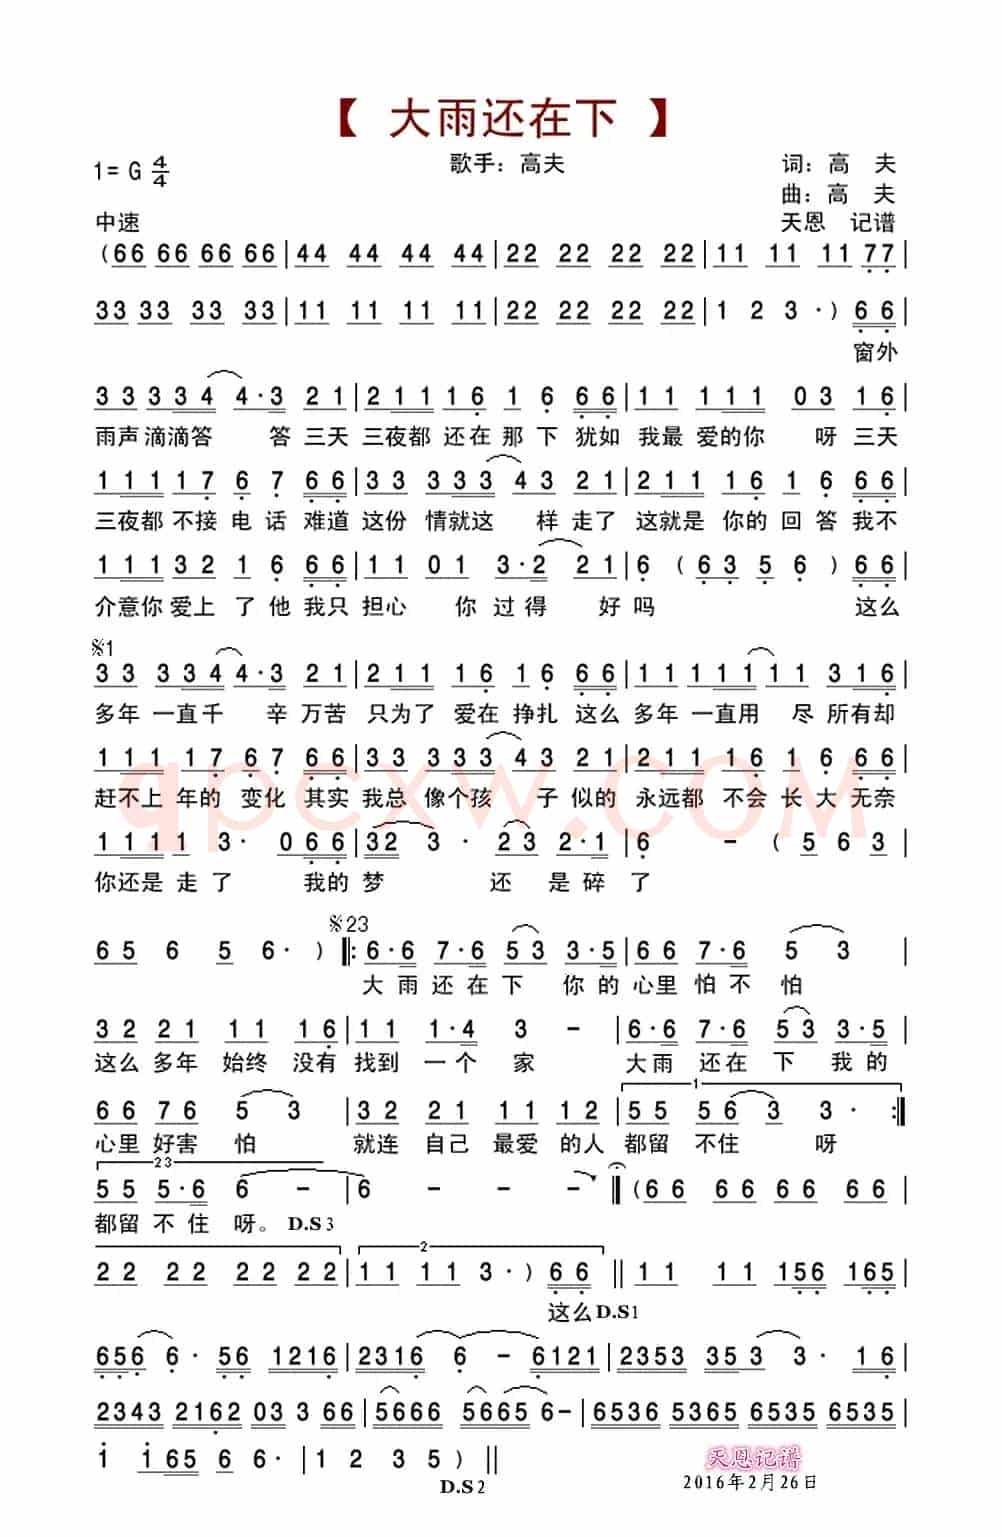 【 大雨还在下 】
1= G 4/4 歌手：高夫 词：高 夫
曲：高 夫
中速 天恩 记谱
(66 66 66 66|44 44 44 44|22 22 22 22|11 11 11 77|
33 33 33 33|11 11 11 11|22 22 22 22|1 2 3 ·) 66|
窗外
33 334 4·3 21|211 16 1 6 66|11 111 03 1 6|
雨声滴滴答 答 三天 三夜都 还在 那 下 犹如 我最 爱的你 呀 三天
111 17 6 7 66|33 333 43 21|211 16 1 6 66|
三夜都 不接 电 话 难道 这份 情就这 样 走了 这就是 你的 回 答 我不
111 32 1 6 66|11 01 3·2 21|6 (63 56) 66|
介意你 爱上 了 他 我只 担心 你 过得 好吗 这么
𝄋1
33 334 4·3 21|211 16 16 66|11 1111 11 331|
多年 一直千 辛 万苦 只为了 爱在 挣扎 这么 多年 一直用 尽 所有却
111 17 67 66|33 333 43 21|211 16 1 6 66|
赶不上 年的 变化 其实 我总 像个孩 子 似的 永远都 不会 长 大 无奈
qpcxw.com
1111 3· 066|32 3· 23 2·1|6 - (5 63|
你还是 走 了 我的 梦 还 是 碎 了
𝄋23
65 6 5 6·)‖:6·6 7·6 53 3·5|66 7·6 5 3|
大 雨 还 在 下 你 的 心里 怕 不 怕
32 21 11 16|11 1·4 3 -|6·6 7·6 53 3·5|
这么 多年 始终 没有 找到 一 个 家 大雨 还在 下 我 的
1
66 76 5 3|32 21 11 12|55 56 3 3· :‖
心里 好害 怕 就连 自己 最爱 的人 都留 不住 呀
23
55 5·6 6 -|6 - - -‖(66 66 66 66|
都留 不 住 呀。 D.S 3
2
22 22 22 22|11 11 3·) 66‖11 11 156 165|
这么 D.S1
656 6· 56 1216|2316 6 - 6121|2353 353 3· 16|
2343 2162 03 3 66|5666 5665 6-|6536 5365 6535 6535|
1 165 56 6·|1 2 3 5)‖ 天恩记谱
D.S 2 2016年2月26日